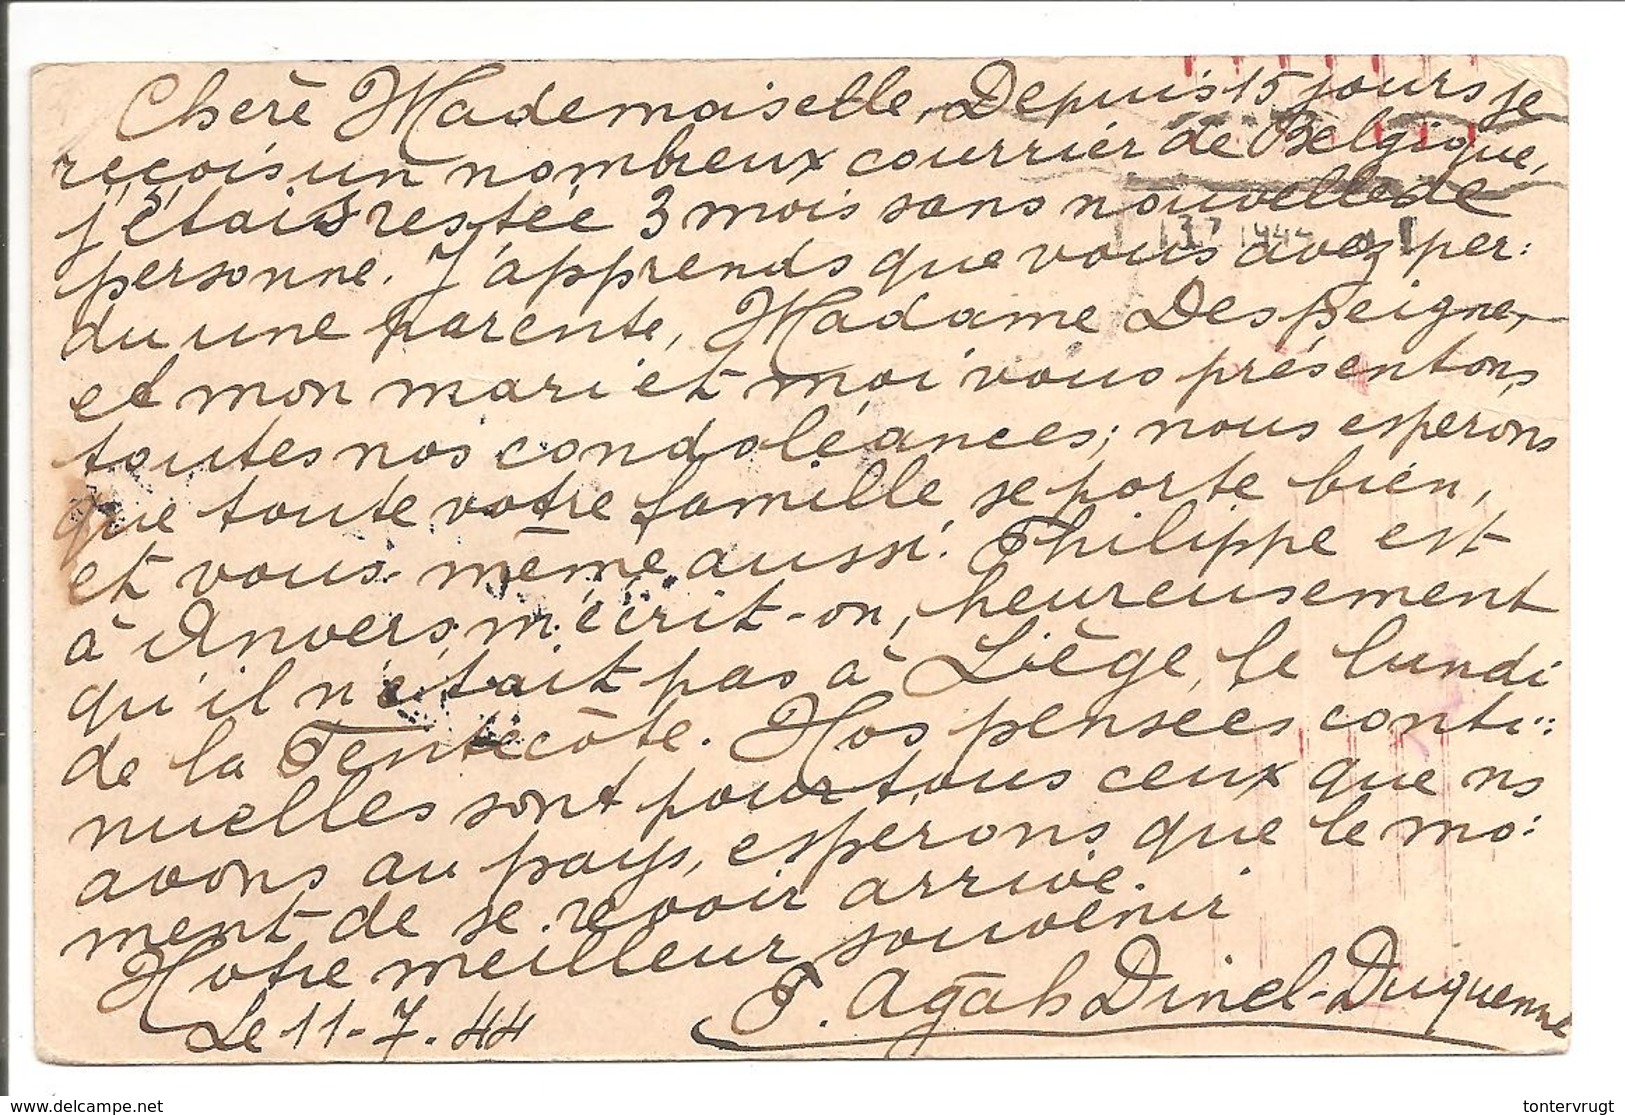 Chère Mademoiselle, Depuis 15 jours je
reçois un nombreux courrier de Belgique,
j'étais restée 3 mois sans nouvelle de
personne. J'apprends que vous avez per:
du une parente, Madame Despeigne,
et mon mari et moi vous présentons
toutes nos condoléances; nous esperons
que toute votre famille se porte bien,
et vous-même aussi. Philippe est
à Anvers, m'écrit-on, heureusement
qu'il n'était pas à Liège, le lundi
de la Pentecôte. Nos pensées conti::
nuelles sont pour tous ceux que ns
avons au pays, esperons que le mo:
ment de se revoir arrive.
Notre meilleur souvenir
Le 11-7.44
P. Agah Dinel-Duquenne
www.delcampe.net/id/store/
tontervrugt